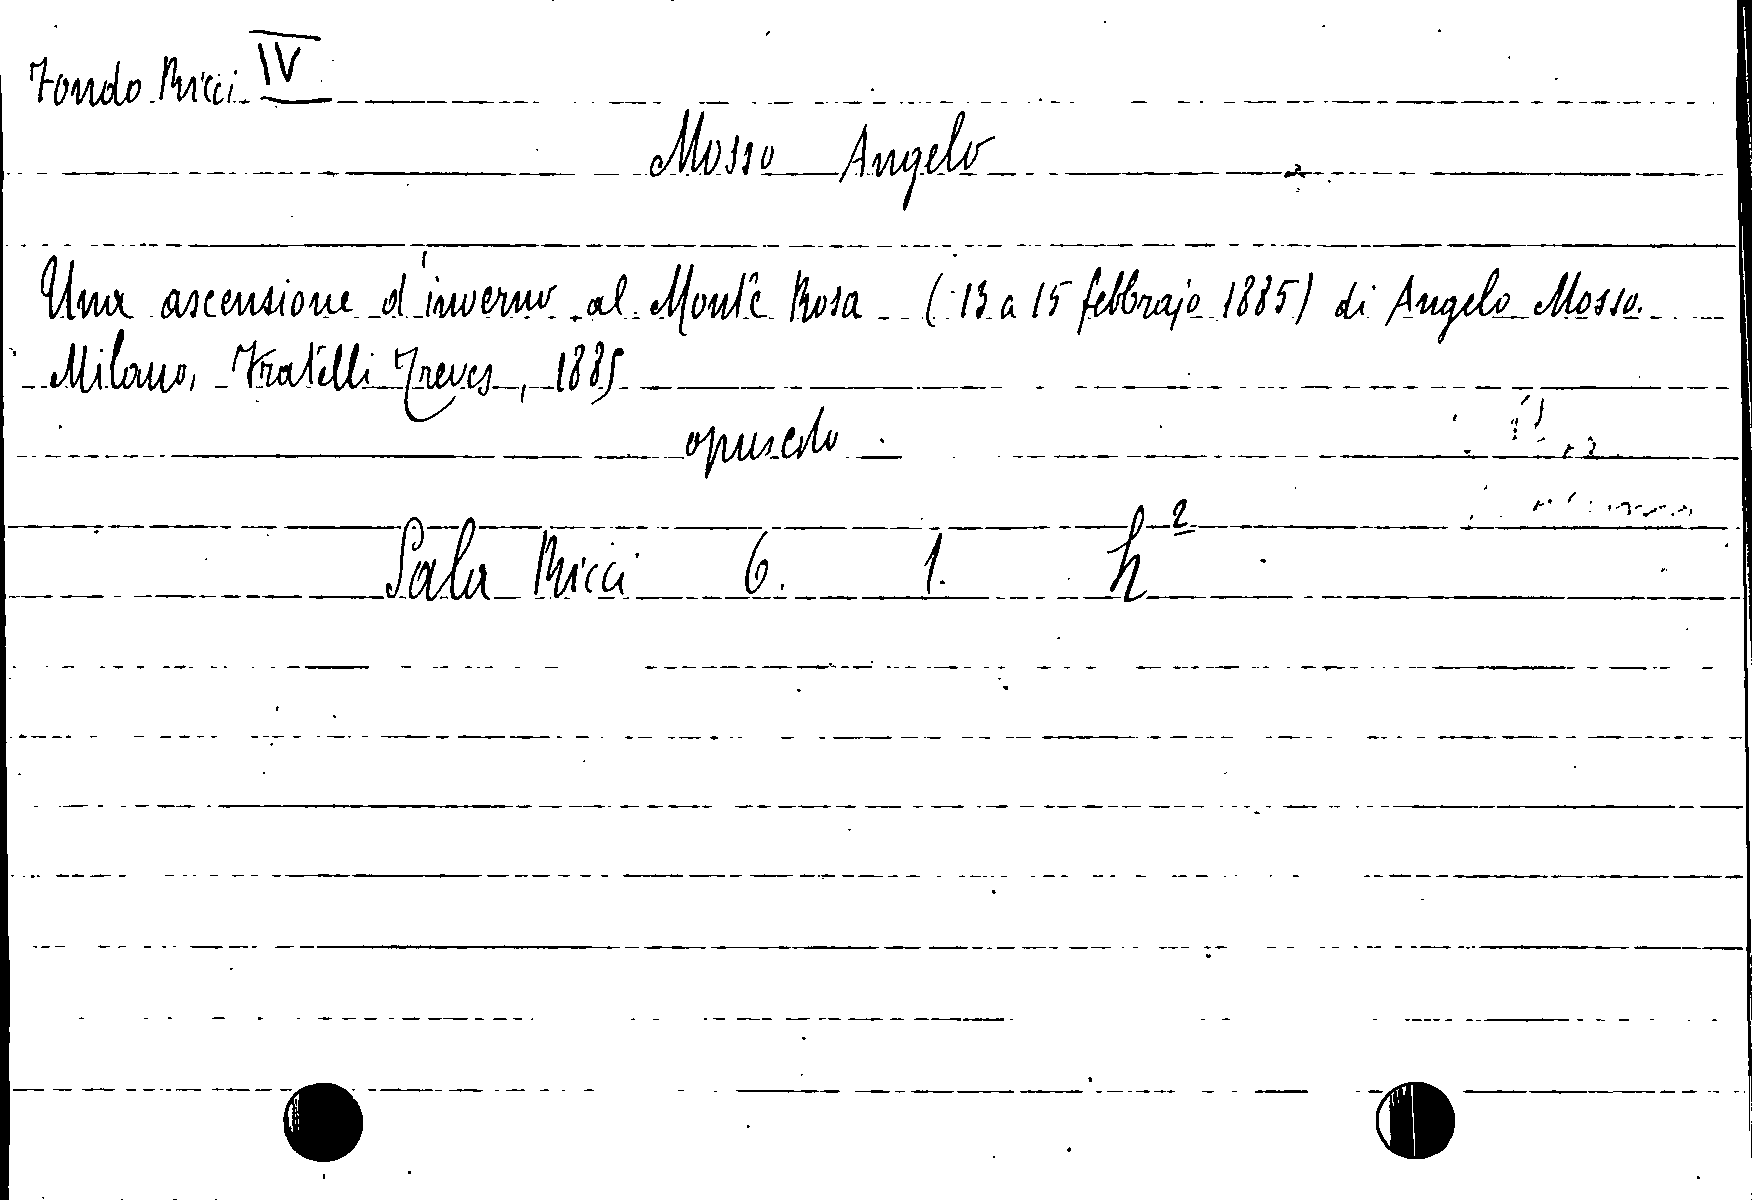 Fondo Ricci IV
Mosso Angelo
Una ascensione d'inverno al Monte Rosa (13 a 15 febbrajo 1885) di Angelo Mosso.
Milano, Fratelli Treves, 1885
opuscolo
Sala Ricci 6. 1. h²